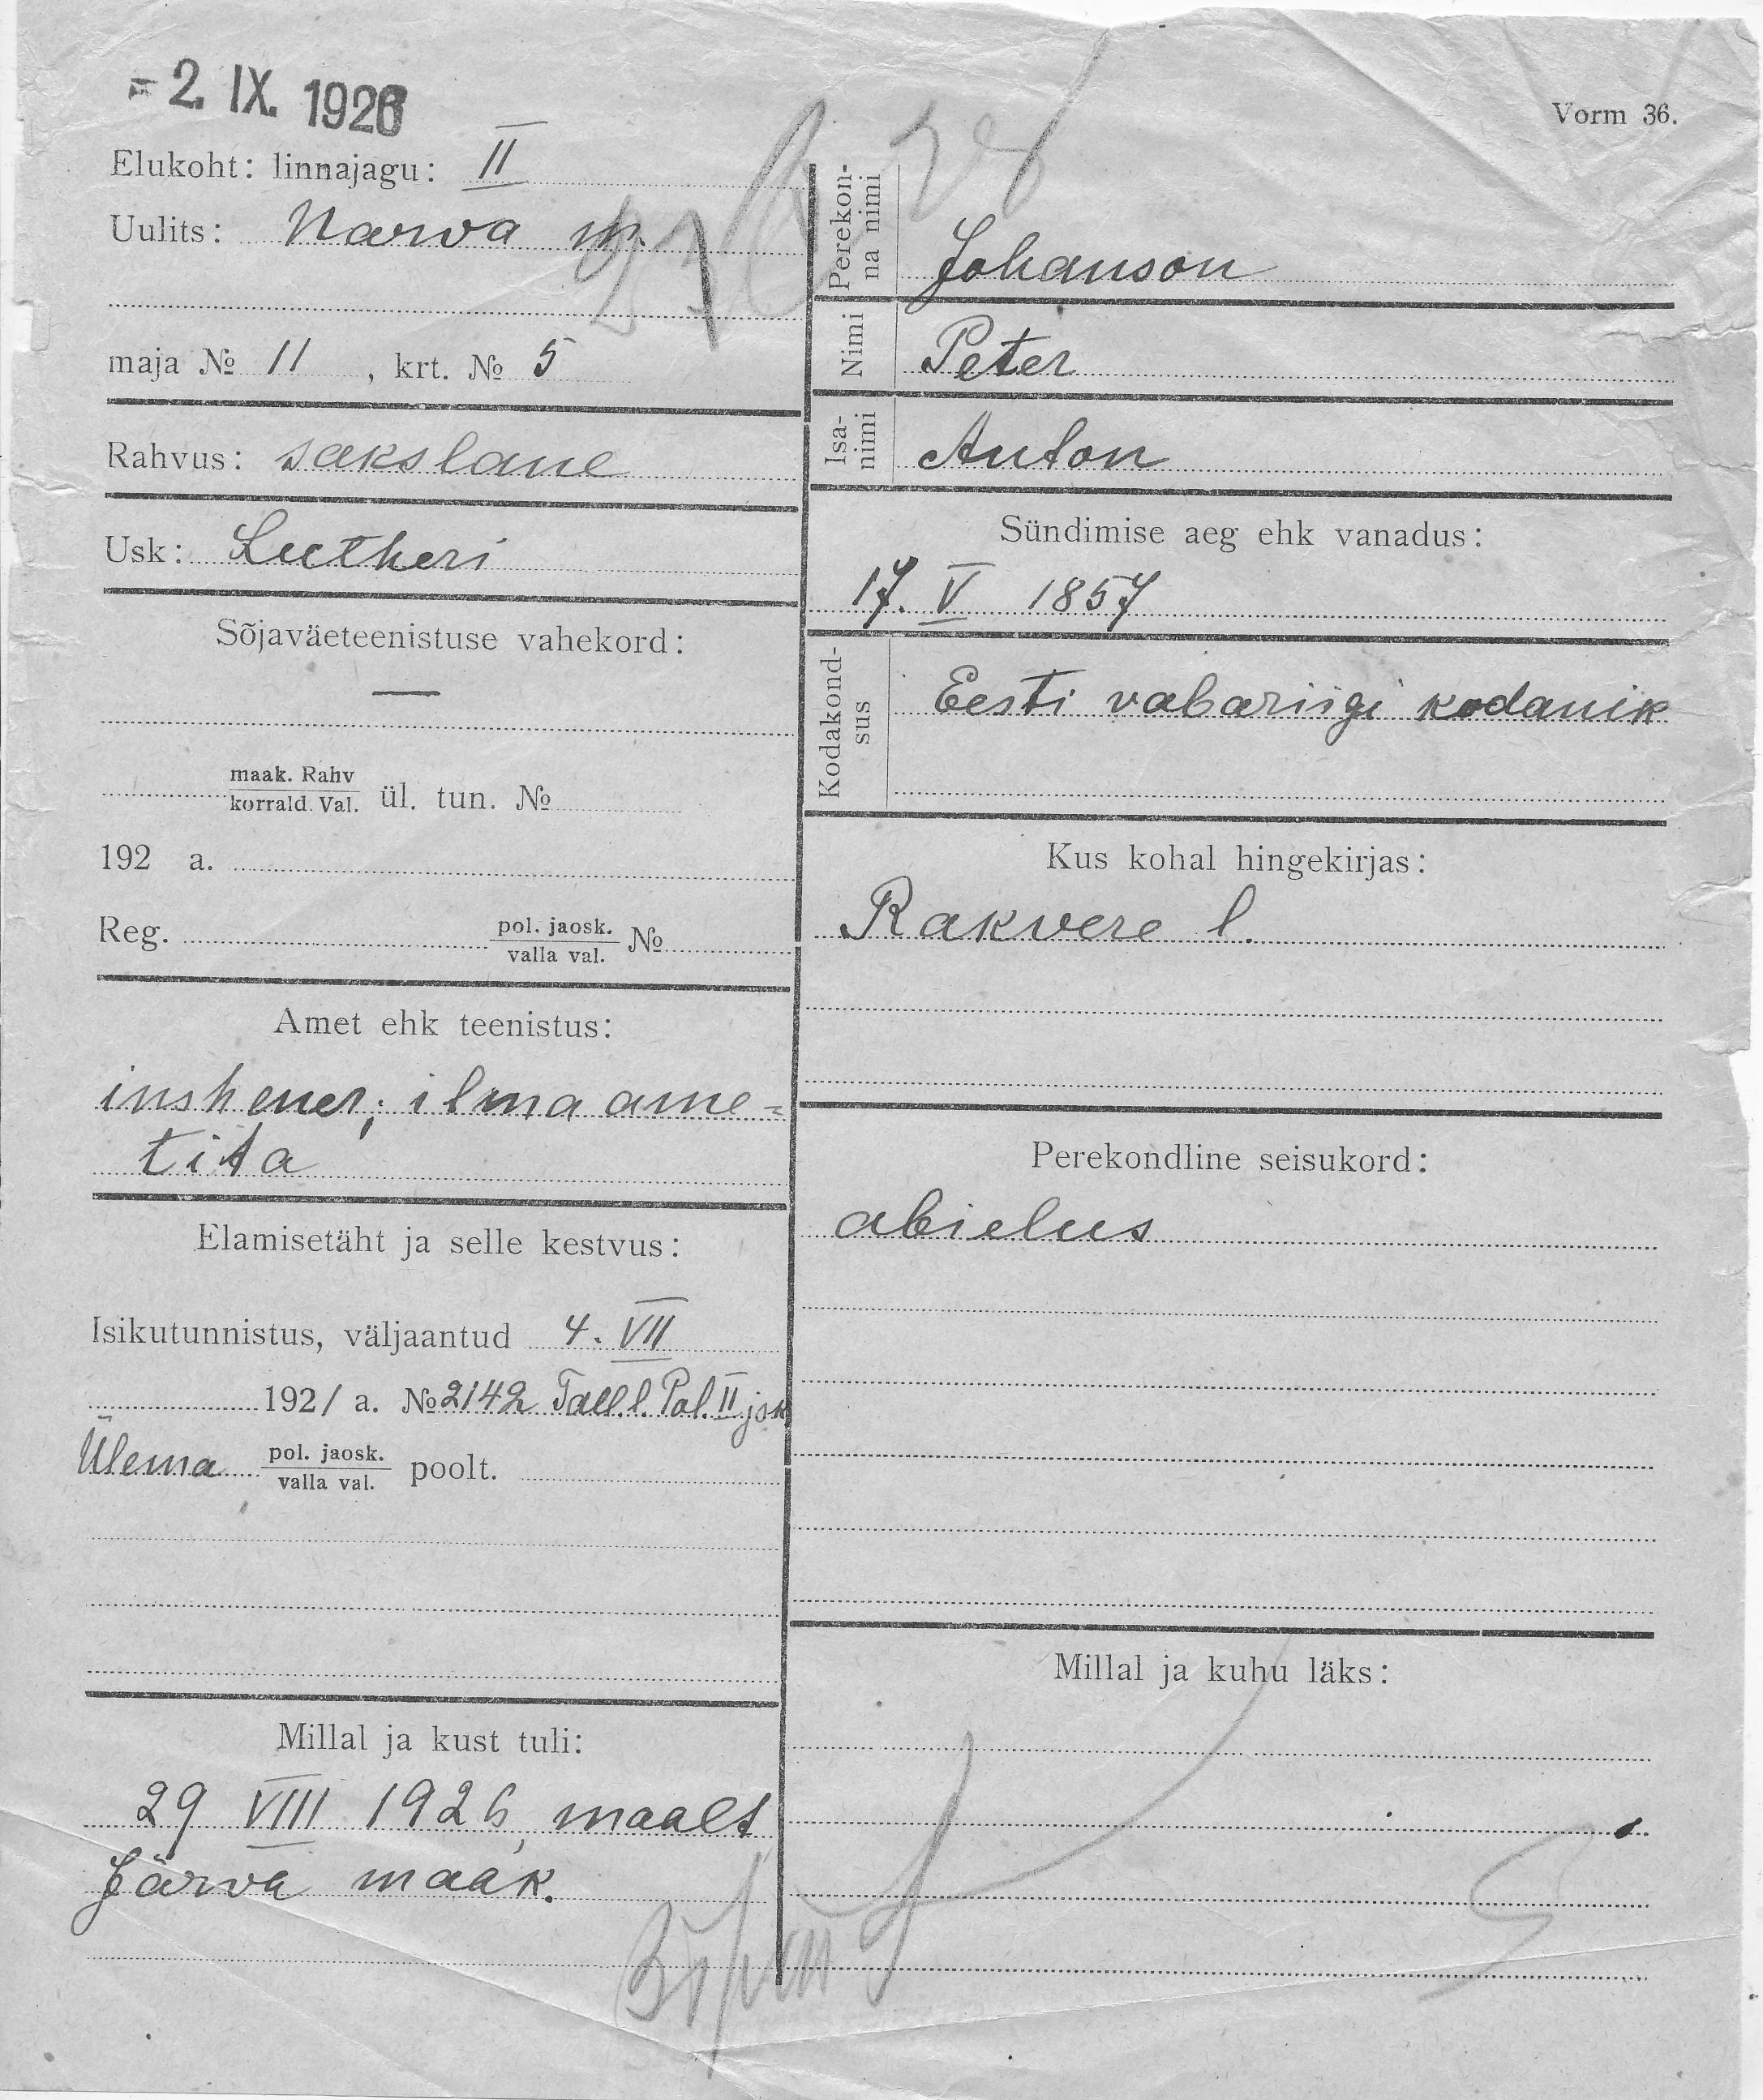 2. IX. 1926
Vorm 36.
Elukoht: linnajagu: II
Uulits: Narva m.
maja № 11, krt. № 5
Rahvus: sakslane
Usk: Lutheri
Sõjaväeteenistuse vahekord:
—
maak. Rahv
korrald. Val. ül. tun. №
192 a.
Reg. pol. jaosk. №
valla val.
Amet ehk teenistus:
inshener; ilma ame-
tita
Elamisetäht ja selle kestvus:
Isikutunnistus, väljaantud 4. VII
1921 a. № 2142 Tall. l. Pol. II jsk
Ülema pol. jaosk. poolt.
valla val.
Millal ja kust tuli:
29 VIII 1926, maalt
Järva maak.
Perekon-
na nimi Johanson
Nimi Peter
Isa-
nimi Anton
Sündimise aeg ehk vanadus:
17. V 1857
Kodakond-
sus Eesti vabariigi kodanik
Kus kohal hingekirjas:
Rakvere l.
Perekondline seisukord:
abielus
Millal ja kuhu läks: